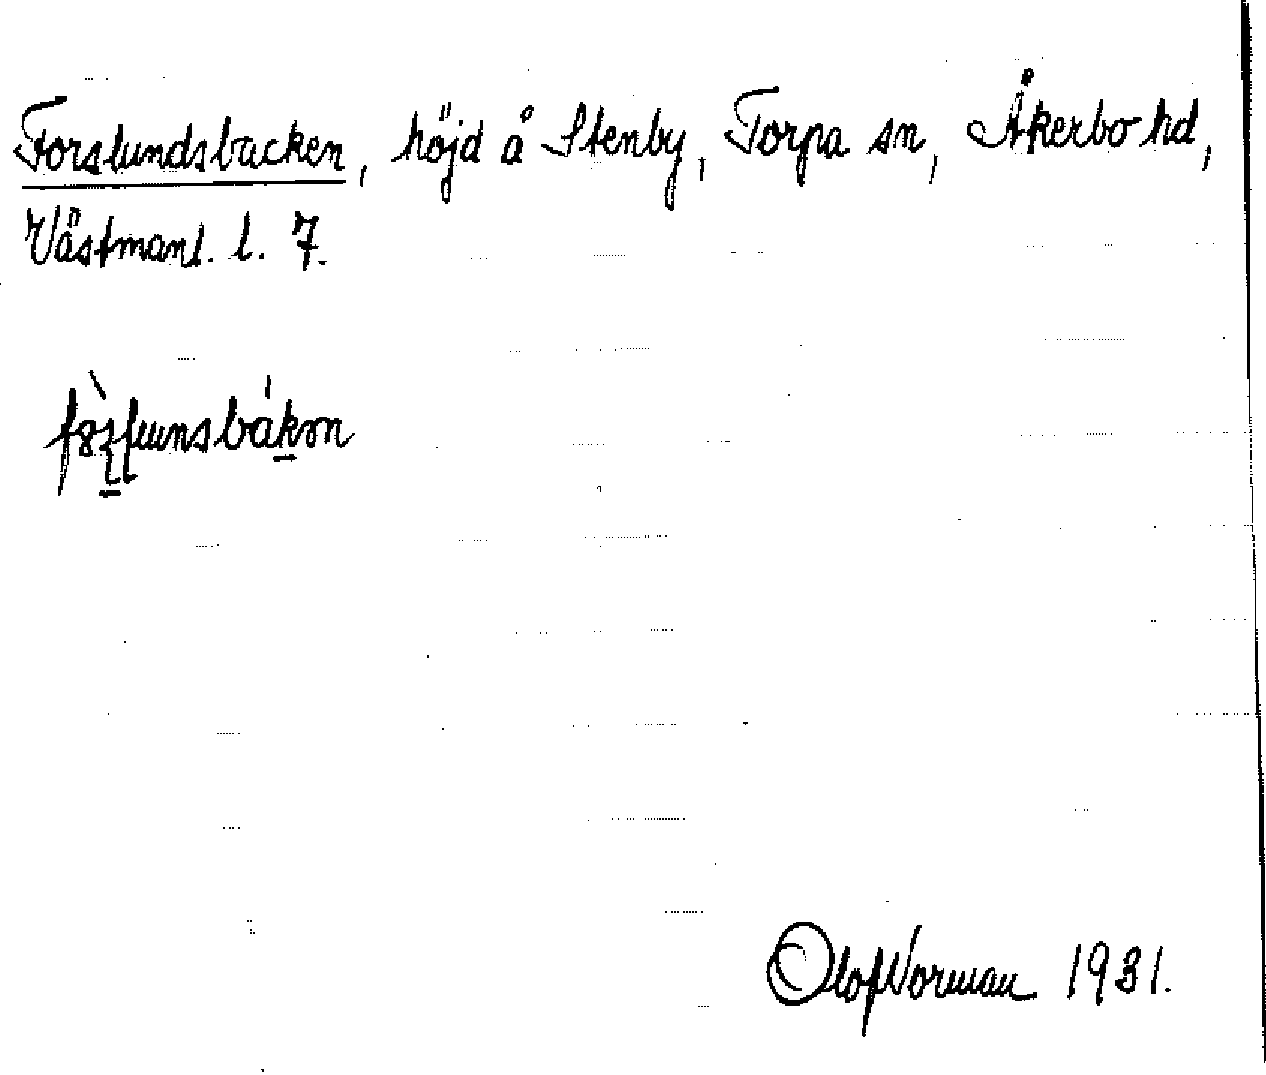 Forslundsbacken, höjd å Stenby, Torpa sn, Åkerbo hd,
Västmanl. l. 7.
Olof Norman 1931.